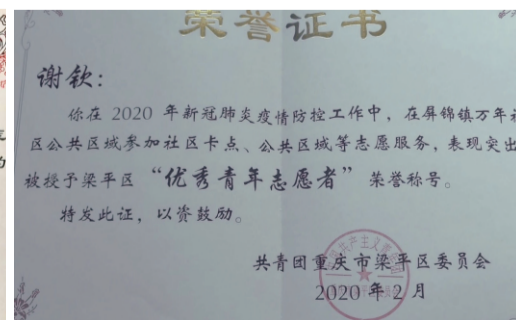 荣誉证书
谢钦：
你在 2020 年新冠肺炎疫情防控工作中，在屏锦镇万年社
区公共区域参加社区卡点、公共区域等志愿服务，表现突出
被授予梁平区“优秀青年志愿者”荣誉称号。
特发此证，以资鼓励。
共青团重庆市梁平区委员会
2020年2月